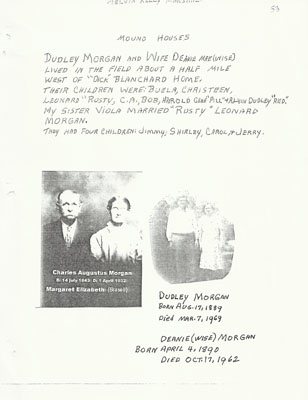 53
MOUND HOUSES
DUDLEY MORGAN AND WIFE DEANIE MAE (WISE)
LIVED IN THE FIELD ABOUT A HALF MILE
WEST OF "DICK" BLANCHARD HOME.
THEIR CHILDREN WERE: BUELA, CHRISTEEN,
LEONARD "RUSTY, C.A., BOB, HAROLD GENE & ALVIN DUDLEY "RED."
MY SISTER VIOLA MARRIED "RUSTY" LEONARD
MORGAN.
THEY HAD FOUR CHILDREN: JIMMY, SHIRLEY, CAROL, & JERRY.
Charles Augustus Morgan
B: 14 July 1843 D: 1 April 1932
Margaret Elizabeth
DUDLEY MORGAN
BORN AUG. 17, 1889
DIED MAR. 7, 1969
DEANIE (WISE) MORGAN
BORN APRIL 4, 1890
DIED OCT. 17, 1962